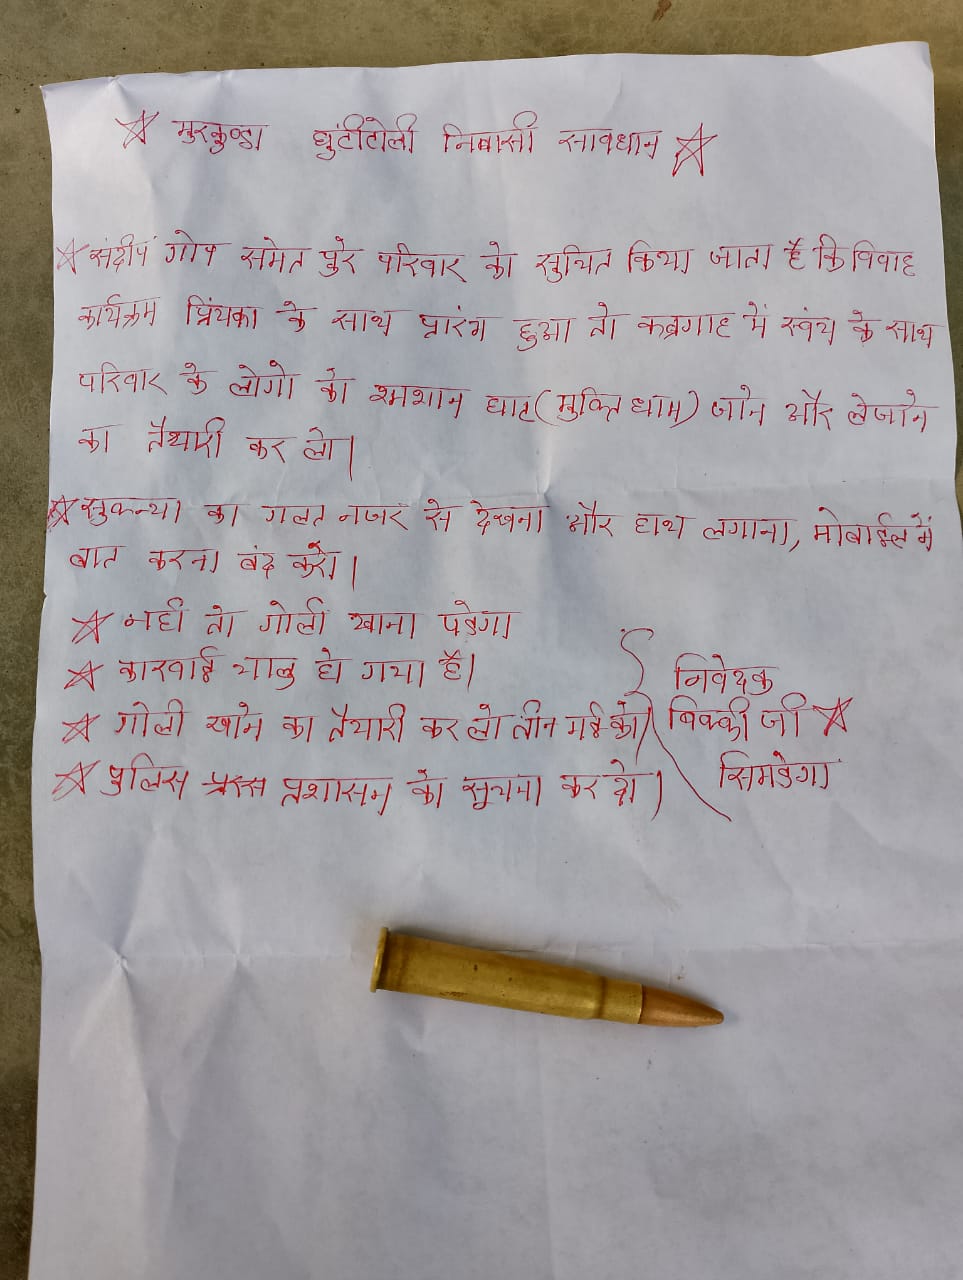 ☆ मुरकुण्डा घुंटीटोली निवासी सावधान ☆
☆ संदीप गोप समेत पुरे परिवार को सुचित किया जाता है कि विवाह
कार्यक्रम प्रिंयका के साथ प्रारंग हुआ तो कब्रगाह में स्वंय के साथ
परिवार के लोगो को श्मशान घाट (मुक्ति धाम) जाने और लेजाने
का तैयारी कर लो।
☆ सुकन्या का गलत नजर से देखना और हाथ लगाना, मोबाईल में
बात करना बंद करो।
☆ नही तो गोली खाना पडेगा
☆ कारवाई चालु हो गया है।
☆ गोली खाने का तैयारी कर लो तीन भाई को
☆ पुलिस प्रशासन को सूचना कर दो।
निवेदक
विक्की जी ☆
सिमडेगा